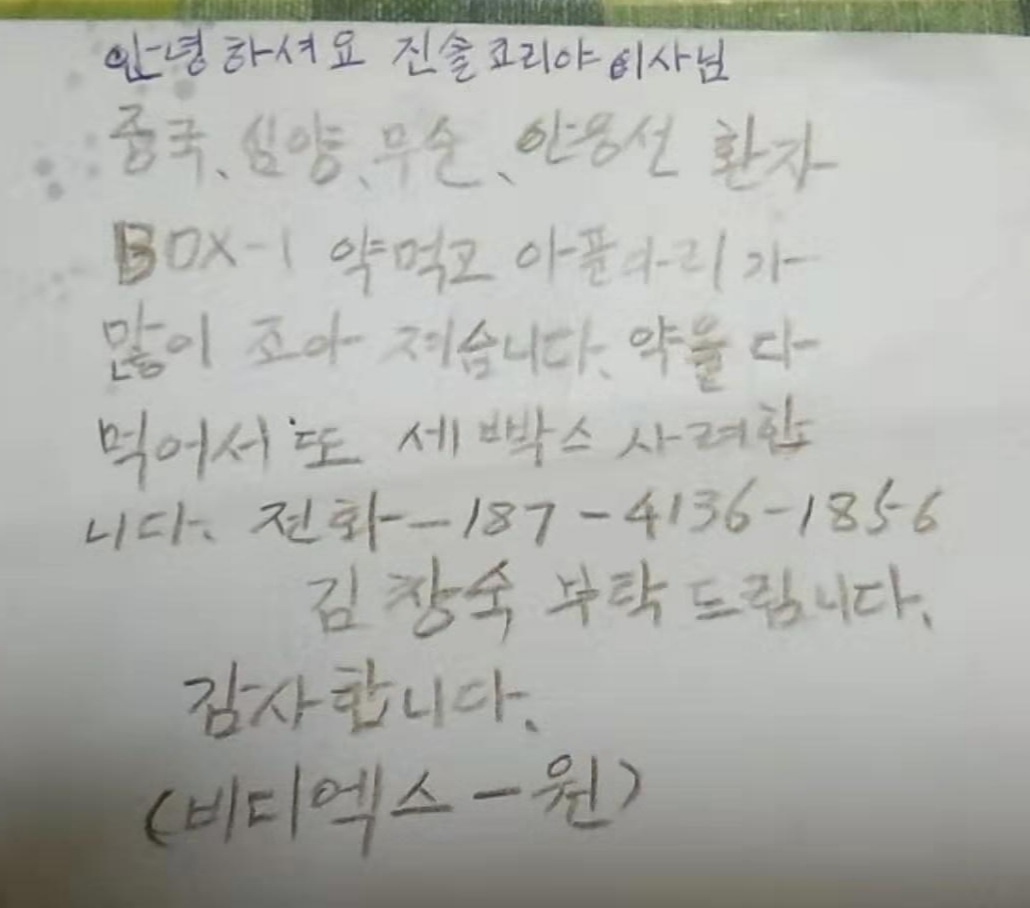 안녕하셔요 진솔코리아 이사님
중국、심양、무순、안용선 환자
BOX-1 약먹고 아픈다리가
많이 조아 저습니다、약을 다
먹어서 또 세빡스 사려합
니다、전화-187-4136-1856
김창숙 부탁드립니다、
감사합니다、
(비디엑스-원)